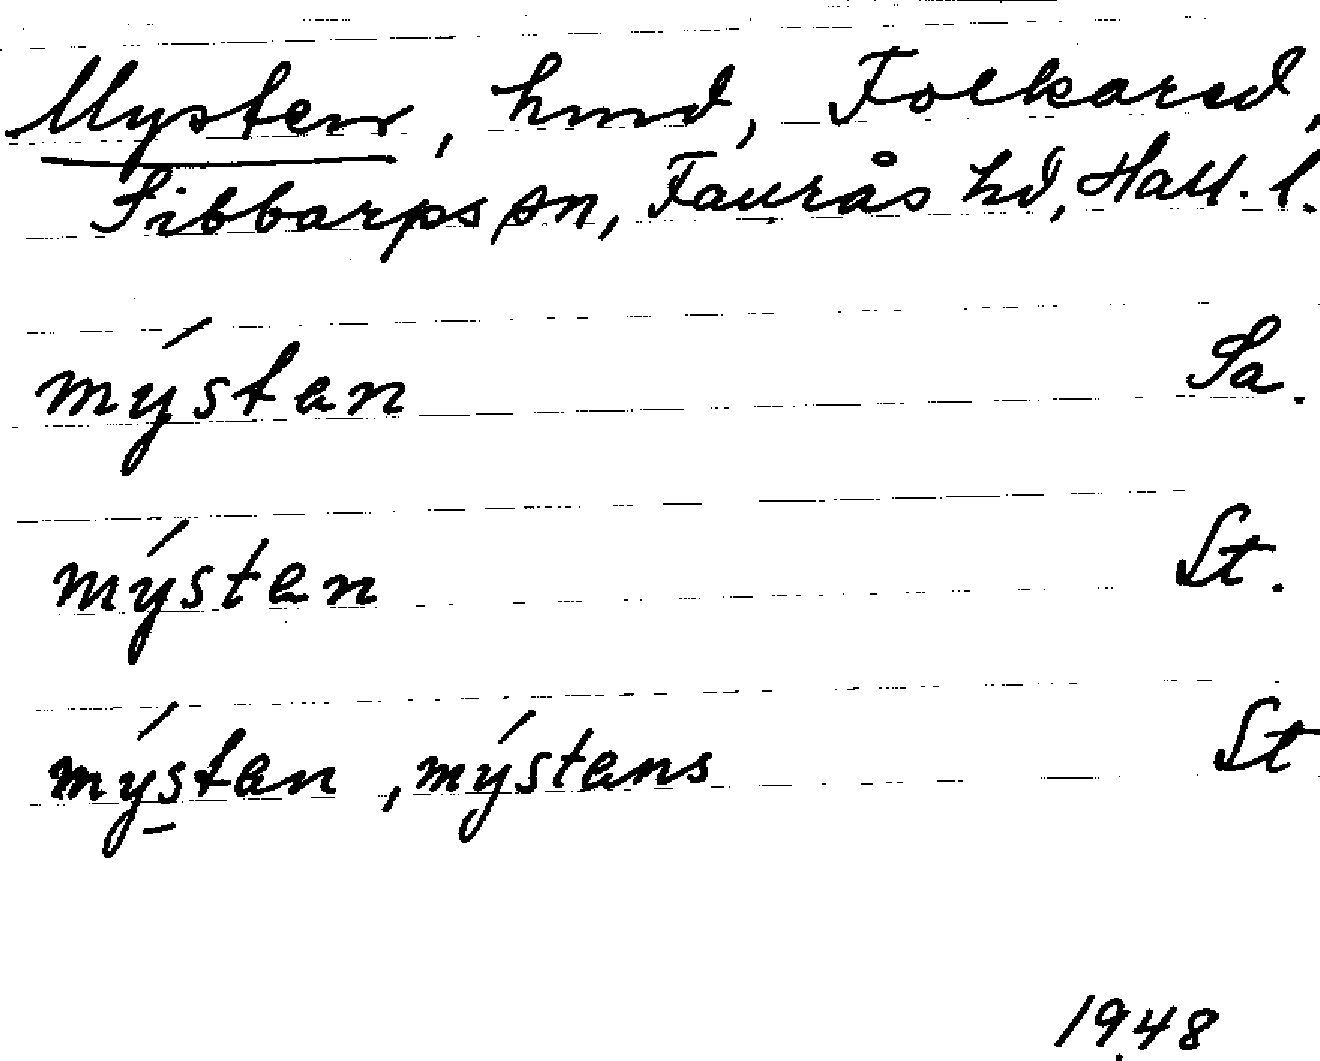 Mysten, hmd, Folkared,
Sibbarps sn, Faurås hd, Hall. l.
mýstan Sa.
mýstan St.
mýstan, mýstans St
1948